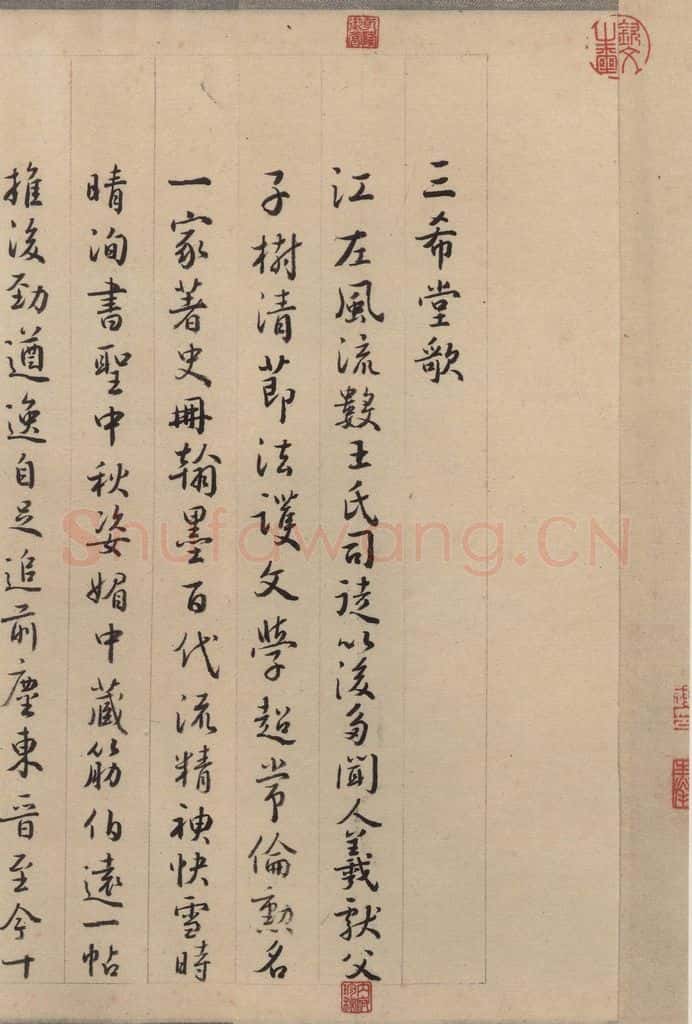 三希堂歌
江左風流數王氏司徒以後多聞人羲獻父
子樹清節法護文學超常倫勲名
一家著史冊翰墨百代流精神快雪時
晴洵書聖中秋姿媚中藏筋伯遠一帖
推後勁遒逸自足追前塵東晉至今十
Shufawang.CN